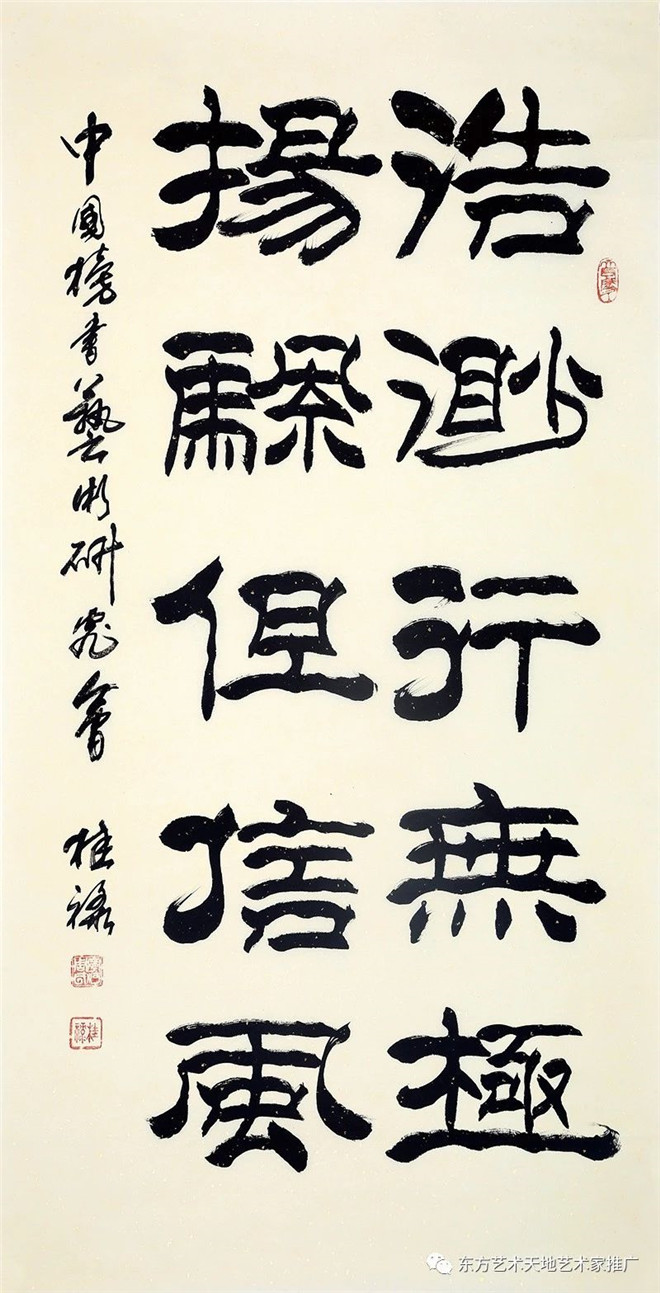 浩渺行無極
揚颿但信風
中國榜書藝術研究會 桂祿
东方艺术天地艺术家推广